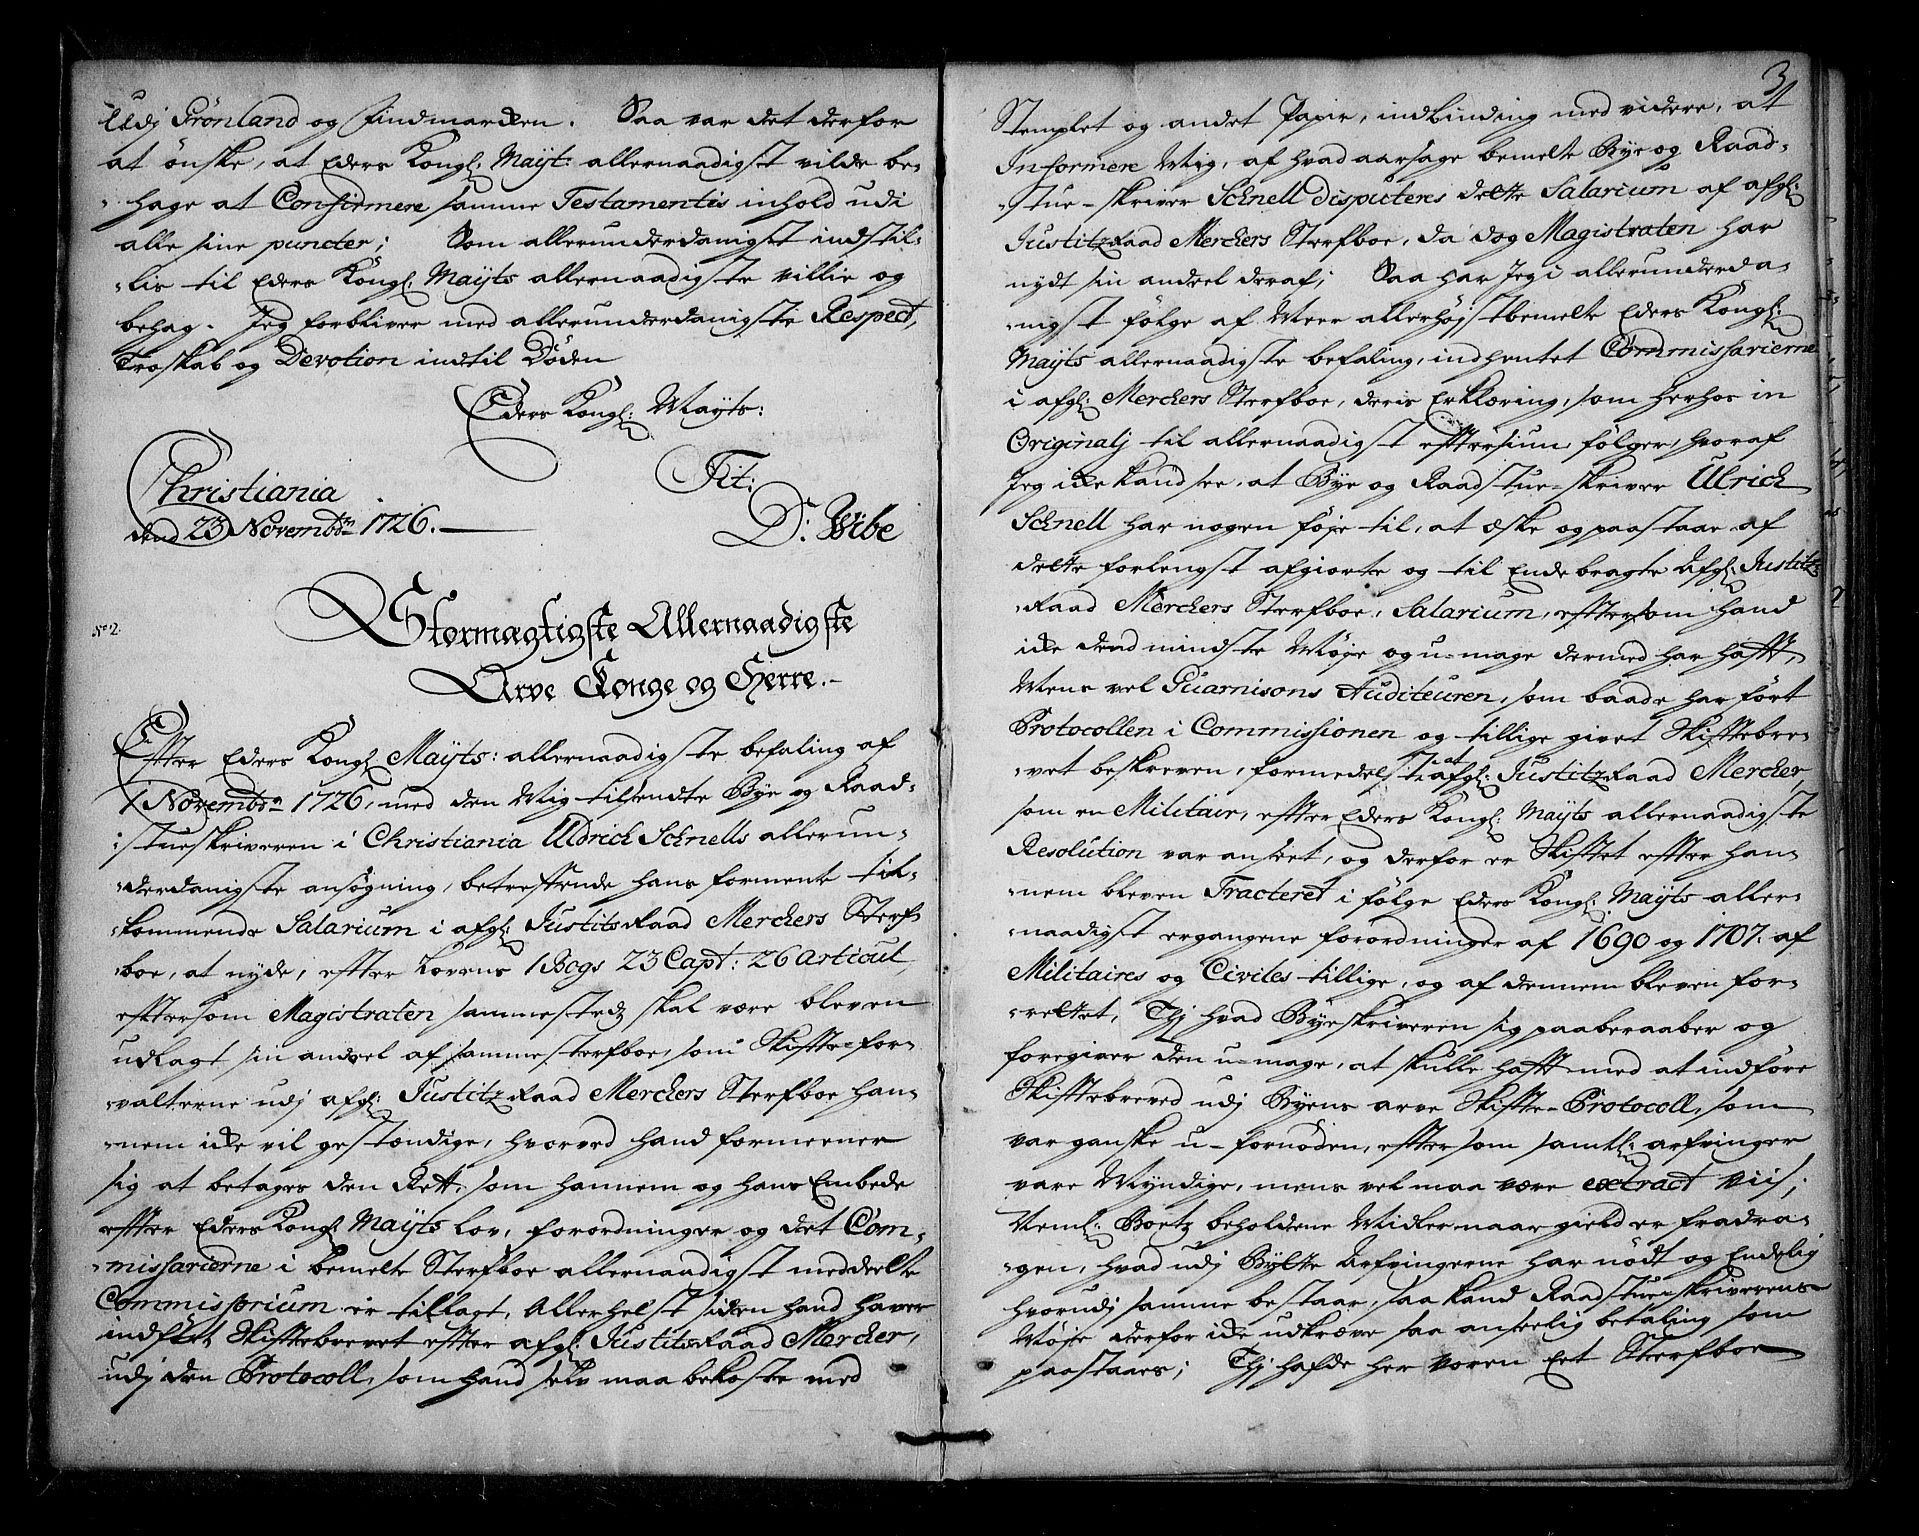 Udj Grönland og Findmarcken. Saa var det derfor
at ønske, at Eders Kongl: Mayt: allernaadigst vilde be-
hage at Confirmere samme Testamentis inhold udi
alle sine puncter; Som allerunderdanigst indstil-
lis til Eders Kongl: Mayts allernaadigste villie og
behag. Jeg forbliver med allerunderdanigste Respect,
Troskab og Devotion indtil Døden
Eders Kongl: Mayts:
Christiania
dend 23 Novembr 1726.
Tit:
D: Wibe
No 2.
Stormægtigste Allernaadigste
Arve Konge og Herre.
Efter Eders Kongl Mayts: allernaadigste befaling af
1 Novembr 1726, med den Mig tilsendte Bye og Raad-
stueskriveren i Christiania Uldrich Schnells allerun-
derdanigste ansøgning, betreffende hans formente til-
kommende Salarium i afgl: Justits Raad Merchers Sterf-
boe, at nyde, effter Lovens 1 Bogs 23 Capt: 26 Articul,
efftersom Magistraten sammestedz skal være bleven
udlagt sin andeel af samme sterfboe, som Skiffte-for-
valterne udj afgl: Justitz Raad Merchers Sterfboe han-
nem icke vil gestændige, hvorved hand formeener
sig at betages den Rett, som hannem og hans Embede
effter Eders Kongl Mayts Lov, forordninger og det Com-
missarierne i bemelte Sterfboe allernaadigst meddeelte
Commissorium er tillagt, Allerhelst siden hand haver
indført Skifftebrevet effter afgl: Justits Raad Mercher,
udj den Protocoll, som hand selv maa bekoste med
3
Stemplet og andet Papir, indbinding med videre, at
Informere Mig, af hvad aarsage bemelte Bye og Raad-
stue-skriver Schnell disputeres dette Salarium af afgl:
Justitz Raad Merchers Sterfboe, da dog Magistraten har
nydt sin andeel deraf; Saa har Jeg i allerunderda-
nigst følge af Meer allerhøjstbemelte Eders Kongl:
Mayts allernaadigste befaling, indhentet Commissarierne
i afgl: Merchers Sterfboe, deris Erklæring, som herhos in
Originalj til allernaadigst efftersiun følger, hvoraf
Jeg icke kand see, at Bye og Raadstue-skriver Ulrich
Schnell har nogen føje til, at æske og paastaae af
dette forlengst afgiorte og til Ende bragte Afgl: Justitz
Raad Merchers Sterfboe, Salarium, efftersom hand
icke dend mindste Møje og u-mage dermed har hafft,
Mens vel Guarnisons Auditeuren, som baade har ført
Protocollen i Commissionen og tillige givet Skifftebre-
vet beskreven, formedelst at afgl: Justitz Raad Mercher,
som en Militair, effter Eders Kongl: Mayts allernaadigste
Resolution var anseet, og derfor er Skifftet effter han-
nem bleven Tracteret i følge Eders Kongl: Mayts aller-
naadigst ergangene forordninger af 1690 og 1707. af
Militaires og Civiles tillige, og af dennem bleven for-
rettet, Thj hvad Byeskriveren sig paaberaaber og
foregiver den u-mage, at skulle hafft med at indføre
Skifftebreved udj Byens arve Skiffte-Protocoll, som
var ganske u-fornøden, efftersom samtl: arfvinger
vare Myndige, mens vel maa være extract viis;
Veml: Boetz beholdene Midler naar gield er fradra-
gen, hvad udj Bytte Arfvingerne har nødt og Endelig
hvorudj samme bestaar, saa kand Raadstue-skriverens
Møje derfor icke udkræve saa anseelig betaling som
paastaaes; Thj hafde her voren Eet Sterfboe